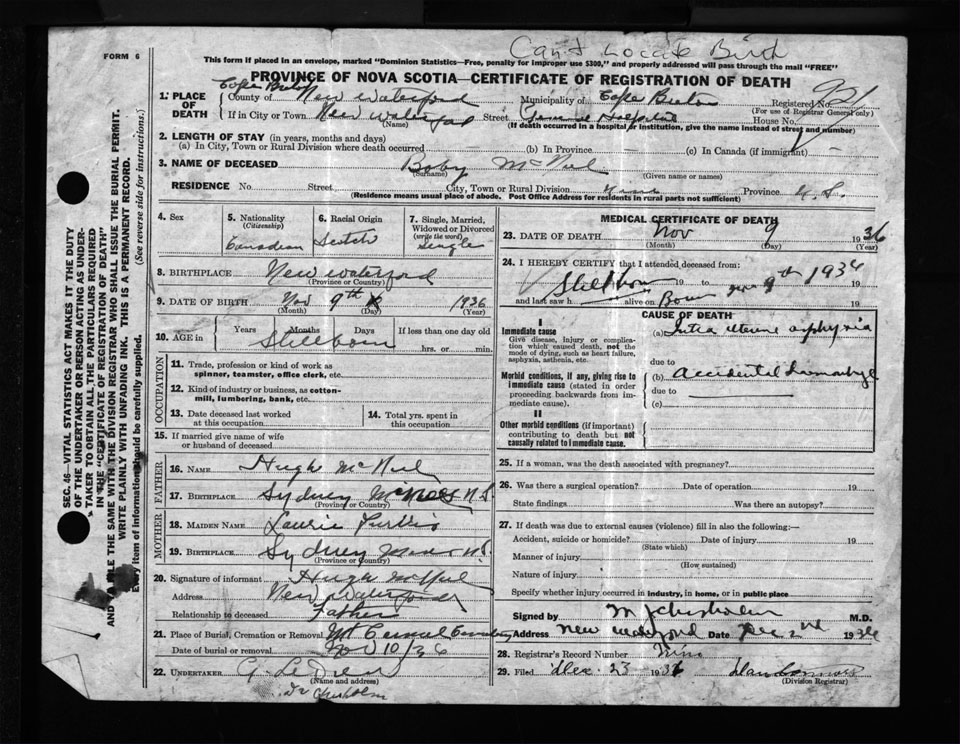 Can't Locate Birth
FORM 6
This form if placed in an envelope, marked "Dominion Statistics—Free, penalty for improper use $300," and properly addressed will pass through the mail "FREE"
PROVINCE OF NOVA SCOTIA—CERTIFICATE OF REGISTRATION OF DEATH
1. PLACE OF DEATH
Cape Breton
County of New Waterford Municipality of Cape Breton Registered No.
(For use of Registrar General only)
If in City or Town New Waterford Street General Hospital House No.
(Name) (If death occurred in a hospital or institution, give the name instead of street and number)
2. LENGTH OF STAY (in years, months and days)
(a) In City, Town or Rural Division where death occurred (b) In Province (c) In Canada (if immigrant)
3. NAME OF DECEASED Baby McNeil
(Surname) (Given name or names)
RESIDENCE No. Street City, Town or Rural Division Province N.S.
(Residence means usual place of abode. Post Office Address for residents in rural parts not sufficient)
4. Sex 5. Nationality (Citizenship) 6. Racial Origin 7. Single, Married, Widowed or Divorced (write the word)
Canadian Scotch Single
8. BIRTHPLACE New Waterford
(Province or Country)
9. DATE OF BIRTH Nov 9th 1936
(Month) (Day) (Year)
10. AGE in Years Months Days If less than one day old
Stillborn hrs. or min.
OCCUPATION
11. Trade, profession or kind of work as spinner, teamster, office clerk, etc.
12. Kind of industry or business, as cotton-mill, lumbering, bank, etc.
13. Date deceased last worked at this occupation 14. Total yrs. spent in this occupation
15. If married give name of wife or husband of deceased
FATHER
16. NAME Hugh McNeil
17. BIRTHPLACE Sydney Mines N.S.
(Province or Country)
MOTHER
18. MAIDEN NAME Laurie
19. BIRTHPLACE Sydney Mines N.S.
(Province or Country)
20. Signature of informant Hugh McNeil
Address New Waterford
Relationship to deceased Father
21. Place of Burial, Cremation or Removal Mt Carmel Cemetery
Date of burial or removal Nov 10/36
22. UNDERTAKER
(Name and address)
Dr Chisholm
MEDICAL CERTIFICATE OF DEATH
23. DATE OF DEATH Nov 9 1936
(Month) (Day) (Year)
24. I HEREBY CERTIFY that I attended deceased from:
Stillborn 19 to 9th 1936
and last saw h alive on Born 19
CAUSE OF DEATH
I
Immediate cause
Give disease, injury or complication which caused death, not the mode of dying, such as heart failure, asphyxia, asthenia, etc.
(a) Intra uterine asphyxia
due to
Morbid conditions, if any, giving rise to immediate cause (stated in order proceeding backwards from immediate cause).
(b) Accidental haemorrhage
due to
(c)
II
Other morbid conditions (if important) contributing to death but not causally related to immediate cause.
25. If a woman, was the death associated with pregnancy?
26. Was there a surgical operation? Date of operation 19
State findings Was there an autopsy?
27. If death was due to external causes (violence) fill in also the following:—
Accident, suicide or homicide? Date of injury 19
(State which)
Manner of injury
(How sustained)
Nature of injury
Specify whether injury occurred in industry, in home, or in public place
Signed by M J Chisholm M.D.
Address New Waterford Date Dec 2nd 1936
28. Registrar's Record Number
29. Filed Dec 23 1936
(Division Registrar)
SEC. 46—VITAL STATISTICS ACT MAKES IT THE DUTY
OF THE UNDERTAKER OR PERSON ACTING AS UNDER-
TAKER TO OBTAIN ALL THE PARTICULARS REQUIRED
IN THE "CERTIFICATE OF REGISTRATION OF DEATH"
AND FILE THE SAME WITH THE DIVISION REGISTRAR WHO SHALL ISSUE THE BURIAL PERMIT.
WRITE PLAINLY WITH UNFADING INK. THIS IS A PERMANENT RECORD.
Every item of information should be carefully supplied. (See reverse side for instructions.)